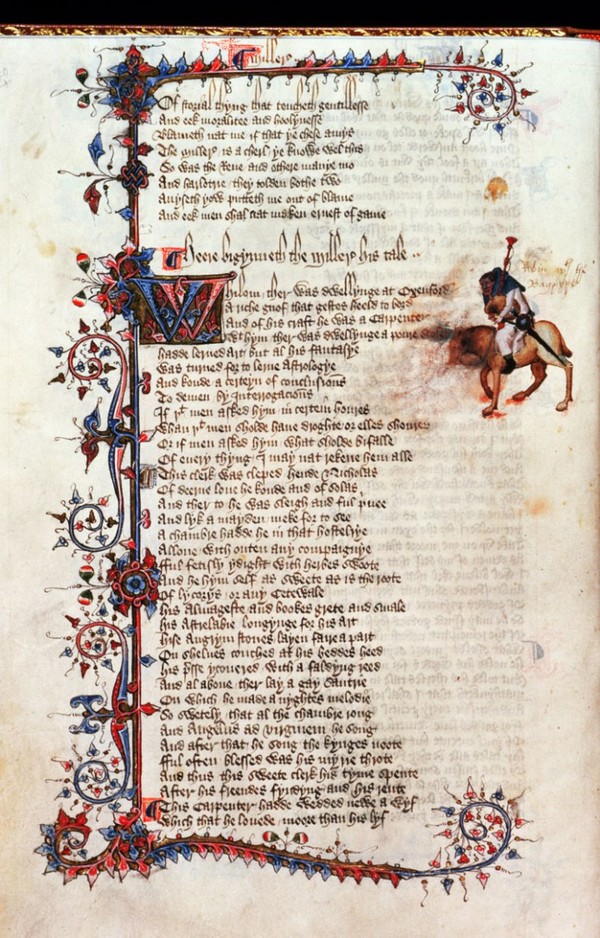 Miller
Of storial thyng that toucheth gentillesse
And eek moralitee and hoolynesse
Blameth nat me if that ye chese amys
The Millere is a cherl ye knowe wel this
So was the Reve and othere manye mo
And harlotrie they tolden bothe two
Avyseth yow putteth me out of blame
And eek men shal nat maken ernest of game
Heere bigynneth the Miller his tale
Whilom ther was dwellynge at Oxenford
A riche gnof that gestes heeld to bord
And of his craft he was a Carpenter
With hym ther was dwellynge a poure
Hadde lerned art but al his fantasye
Was turned for to lerne Astrologye
And koude a certeyn of conclusions
To demen by Interrogacions
If þt men asked hym in certein houres
Whan þt men sholde have droghte or elles shoures
Or if men asked hym what sholde bifalle
Of every thyng I may nat rekene hem alle
This clerk was cleped hende Nicholas
Of deerne love he koude and of solas
And ther to he was sleigh and ful privee
And lyk a mayden meke for to see
A chambre hadde he in that hostelrye
Allone with outen any compaignye
fful fetisly ydight with herbes swoote
And he hym self as sweete as is the roote
Of lycorys or any Cetewale
His Almageste and bookes grete and smale
His Astrelabie longynge for his art
Hise Augrym stones layen faire a part
On shelves couched at his beddes heed
His presse ycovered with a faldyng reed
And al above ther lay a gay Sautrie
On which he made a nyghtes melodie
So swetely that al the chambre rong
And Angelus ad virginem he song
And after that he song the kynges noote
fful often blessed was his myrie throte
And thus this sweete clerk his tyme spente
After his freendes fyndyng and his rente
This Carpenter hadde wedded newe a wyf
Which that he lovede moore than his lyf